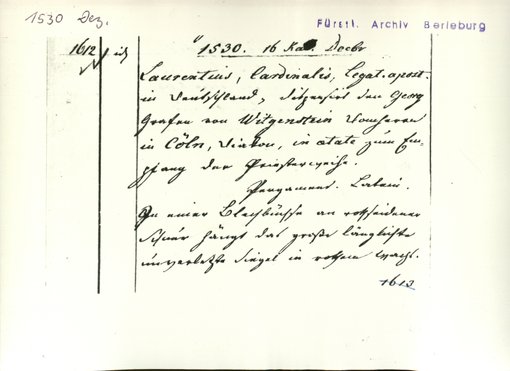 1530 Dez.
Fürstl. Archiv Berleburg
1612
1530. 16 Kal. Decbr
Laurentius, Cardinalis, Legat. apost.
in Deutschland, dispensirt den Georg
Grafen von Witgenstein Domherrn
in Cöln, Diakon, in etate zum Em-
pfang der Priesterweihe.
Pergament. Latein.
In einer Blechbüchse an rothseidener
Schnur hängt das große länglichte
unverletzte Siegel in rothem Wachs.
1613